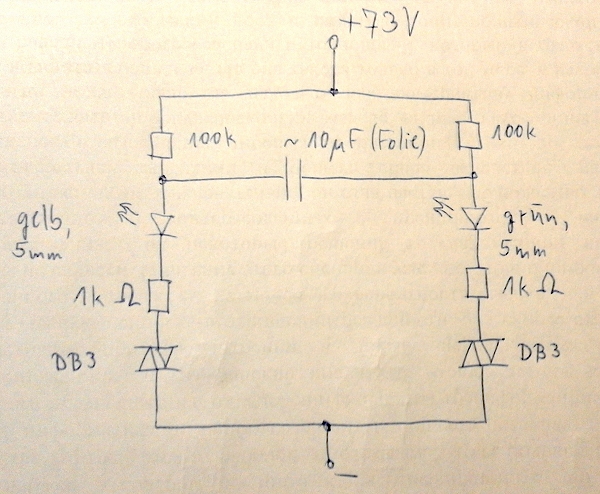 +73V
100k
~ 10µF (Folie)
100k
gelb,
5mm
grün,
5mm
1k Ω
1k Ω
DB3
DB3
−